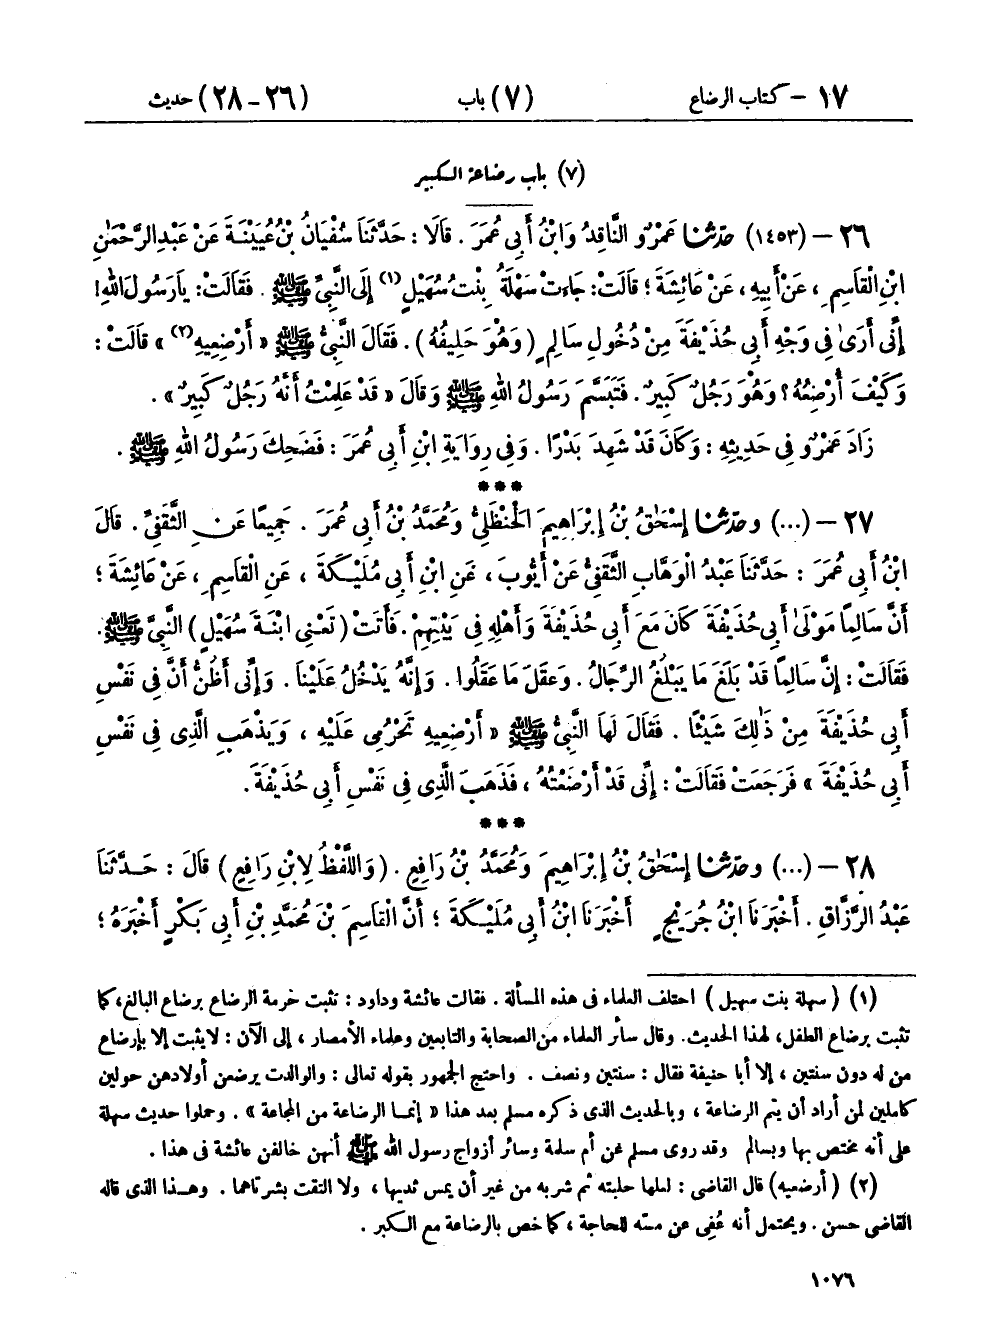 ١٧ - كتاب الرضاع (٧) باب (٢٦ - ٢٨) حديث
(٧) باب رضاعة الكبير
٢٦ - (١٤٥٣) حَدَّثَنَا عَمْرٌو النَّاقِدُ وَابْنُ أَبِي عُمَرَ . قَالَا : حَدَّثَنَا سُفْيَانُ بْنُ عُيَيْنَةَ عَنْ عَبْدِ الرَّحْمَٰنِ
ابْنِ الْقَاسِمِ ، عَنْ أَبِيهِ ، عَنْ عَائِشَةَ ؛ قَالَتْ : جَاءَتْ سَهْلَةُ بِنْتُ سُهَيْلٍ (١) إِلَى النَّبِيِّ ﷺ . فَقَالَتْ : يَا رَسُولَ اللهِ !
إِنِّي أَرَىٰ فِي وَجْهِ أَبِي حُذَيْفَةَ مِنْ دُخُولِ سَالِمٍ ( وَهُوَ حَلِيفُهُ ) . فَقَالَ النَّبِيُّ ﷺ « أَرْضِعِيهِ (٢) » قَالَتْ :
وَكَيْفَ أُرْضِعُهُ ؟ وَهُوَ رَجُلٌ كَبِيرٌ . فَتَبَسَّمَ رَسُولُ اللهِ ﷺ وَقَالَ « قَدْ عَلِمْتُ أَنَّهُ رَجُلٌ كَبِيرٌ » .
زَادَ عَمْرٌو فِي حَدِيثِهِ : وَكَانَ قَدْ شَهِدَ بَدْرًا . وَفِي رِوَايَةِ ابْنِ أَبِي عُمَرَ : فَضَحِكَ رَسُولُ اللهِ ﷺ .
***
٢٧ - (...) وحَدَّثَنَا إِسْحَٰقُ بْنُ إِبْرَاهِيمَ الْحَنْظَلِيُّ وَمُحَمَّدُ بْنُ أَبِي عُمَرَ . جَمِيعًا عَنِ الثَّقَفِيِّ . قَالَ
ابْنُ أَبِي عُمَرَ : حَدَّثَنَا عَبْدُ الْوَهَّابِ الثَّقَفِيُّ عَنْ أَيُّوبَ ، عَنِ ابْنِ أَبِي مُلَيْكَةَ ، عَنِ الْقَاسِمِ ، عَنْ عَائِشَةَ ؛
أَنَّ سَالِمًا مَوْلَىٰ أَبِي حُذَيْفَةَ كَانَ مَعَ أَبِي حُذَيْفَةَ وَأَهْلِهِ فِي بَيْتِهِمْ . فَأَتَتْ ( تَعْنِي ابْنَةَ سُهَيْلٍ ) النَّبِيَّ ﷺ .
فَقَالَتْ : إِنَّ سَالِمًا قَدْ بَلَغَ مَا يَبْلُغُ الرِّجَالُ . وَعَقَلَ مَا عَقَلُوا . وَإِنَّهُ يَدْخُلُ عَلَيْنَا . وَإِنِّي أَظُنُّ أَنَّ فِي نَفْسِ
أَبِي حُذَيْفَةَ مِنْ ذَٰلِكَ شَيْئًا . فَقَالَ لَهَا النَّبِيُّ ﷺ « أَرْضِعِيهِ تَحْرُمِي عَلَيْهِ ، وَيَذْهَبِ الَّذِي فِي نَفْسِ
أَبِي حُذَيْفَةَ » فَرَجَعَتْ فَقَالَتْ : إِنِّي قَدْ أَرْضَعْتُهُ ، فَذَهَبَ الَّذِي فِي نَفْسِ أَبِي حُذَيْفَةَ .
***
٢٨ - (...) وحَدَّثَنَا إِسْحَٰقُ بْنُ إِبْرَاهِيمَ وَمُحَمَّدُ بْنُ رَافِعٍ . ( وَاللَّفْظُ لِابْنِ رَافِعٍ ) قَالَ : حَدَّثَنَا
عَبْدُ الرَّزَّاقِ . أَخْبَرَنَا ابْنُ جُرَيْجٍ أَخْبَرَنَا ابْنُ أَبِي مُلَيْكَةَ ؛ أَنَّ الْقَاسِمَ بْنَ مُحَمَّدِ بْنِ أَبِي بَكْرٍ أَخْبَرَهُ ؛
(١) ( سهلة بنت سهيل ) اختلف العلماء في هذه المسألة . فقالت عائشة وداود : تثبت حرمة الرضاع برضاع البالغ ، كما
تثبت برضاع الطفل ، لهذا الحديث . وقال سائر العلماء من الصحابة والتابعين وعلماء الأمصار ، إلى الآن : لا يثبت إلا بإرضاع
من له دون سنتين ، إلا أبا حنيفة فقال : سنتين ونصف . واحتج الجمهور بقوله تعالى : والوالدات يرضعن أولادهن حولين
كاملين لمن أراد أن يتم الرضاعة ، وبالحديث الذي ذكره مسلم بعد هذا « إنما الرضاعة من المجاعة » . وحملوا حديث سهلة
على أنه مختص بها وبسالم وقد روى مسلم عن أم سلمة وسائر أزواج رسول الله ﷺ أنهن خالفن عائشة في هذا .
(٢) ( أرضعيه ) قال القاضي : لعلها حلبته ثم شربه من غير أن يمس ثديها ، ولا التقت بشرتاهما . وهذا الذي قاله
القاضي حسن . ويحتمل أنه عُفِي عن مسّه للحاجة ، كما خص بالرضاعة مع الكبر .
١٠٧٦